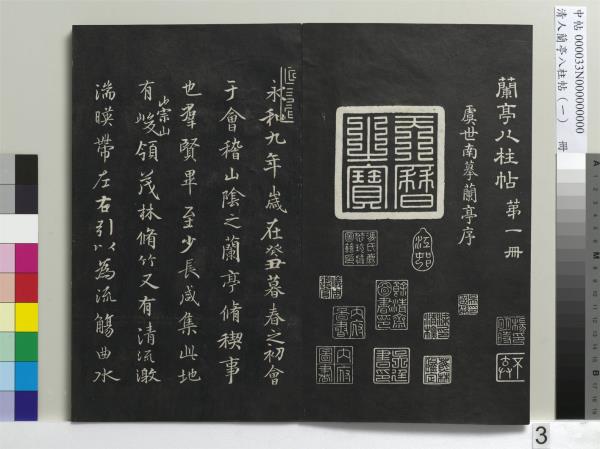 中帖 000033N000000000
清人蘭亭八柱帖（一） 冊
蘭亭八柱帖 第一冊
虞世南摹蘭亭序
天曆之寶
內府圖書
內府圖書
永和九年歲在癸丑暮春之初會
于會稽山陰之蘭亭脩稧事
也羣賢畢至少長咸集此地
有崇山峻領茂林脩竹又有清流激
湍暎帶左右引以為流觴曲水
3